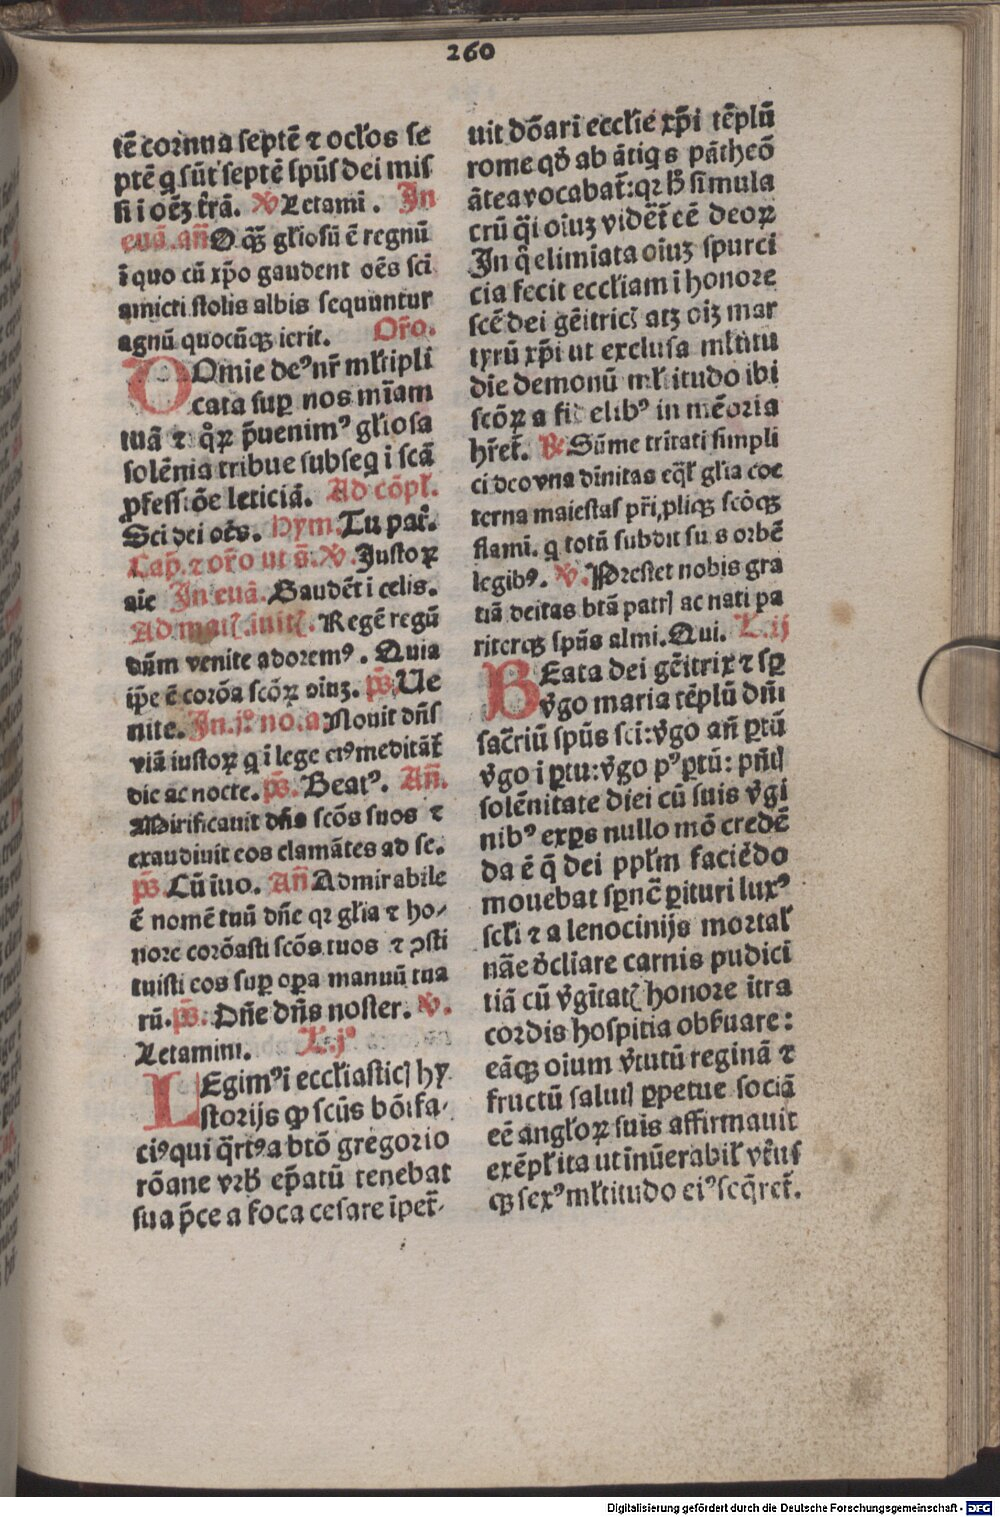 260
tē cornna septē ⁊ ocl̄os se
ptē q sūt septē spūs dei mis
si i oēꝫ t̄rā. ℣ Letami. In
euā. an̄ O qꝫ̄ gl̄iosū ē regnū
ī quo cū xp̄o gaudent oēs sci
amicti stolis albis sequuntur
agnū quocūqꝫ ierit. Or̄o.
Omīe deꝰ nr̄ ml̄tipli
cata suꝑ nos mīam
tuā ⁊ qͦꝝ p̄uenimꝰ gl̄iosa
solēnia tribue subseq i scā
ꝓfessiōe leticiā. Ad cōpl̄.
Sci dei oēs. Hym. Tu pat̄.
Cap̄. ⁊ or̄o ut s̄. ℣. Iustoꝝ
aīe In euā. Gaudēt i celis.
Ad mat. inuit. Regē regū
dn̄m venite adoremꝰ. Quia
ip̄e ē corōa scōꝝ oiuꝫ. ps̄. Ue
nite. In .jͦ. no. a Nouit dn̄s
viā iustoꝝ q i lege eiꝰ meditāt̄
die ac nocte. ps̄. Beatꝰ. An̄.
Mirificauit dn̄s scōs suos ⁊
exaudiuit eos clamātes ad se.
ps̄ Cū īuo. An̄ Admirabile
ē nomē tuū dn̄e qꝛ gl̄ia ⁊ ho⸗
nore corōasti scōs tuos ⁊ ꝯsti
tuisti eos suꝑ oꝑa manuū tua
rū. ps̄. Dn̄e dn̄s noster. ℣.
Letamini. L. jͦ
Legimꝰ i eccl̄iasticꝭ hy
storijs ꝙ scūs bōifa⸗
ciꝰ qui q̄rtꝰ a btō gregorio
rōane vrb̄ ep̄atū tenebat
sua p̄ce a foca cesare īpet̄⸗
uit dōari eccl̄ie xp̄i tēplū
rome qd̄ ab ātiqs pātheō
ātea vocabat̄: qꝛ h̄ simula
crū q̄i oiuꝫ vidēt̄ eē deoꝝ
In q̄ elimiata oiuꝫ spurci
cia fecit eccl̄iam i honore
scē dei gēitricꝭ atqꝫ oiꝫ mar
tyrū xp̄i ut exclusa ml̄titu
die demonū ml̄titudo ibi
scōꝝ a fidelibꝰ in mēoria
hr̄et̄. ℟ Sūme tritati simpli
ci deo vna dīnitas eq̄l̄ gl̄ia coe
terna maiestas pr̄i, pliqꝫ scōqꝫ
flami. q totū subdit suis orbē
legibꝰ. ℣. Prestet nobis gra
tiā deitas btā patrꝭ ac nati pa
riterqꝫ spūs almi. Qui. L. ij
Beata dei gēitrix ⁊ sꝑ
v̄go maria tēplū dn̄i
sacriū spūs sci: v̄go an̄ ꝑtū
v̄go i ꝑtu: v̄go pꝰ ꝑtū: pn̄tꝭ
solēnitate diei cū suis v̄gi
nibꝰ exꝑs nullo mō credē
da ē q̄ dei pplm̄ faciēdo
mouebat sꝑnc̄ ꝑituri luxꝰ
scl̄i ⁊ a lenocinijs mortal̄
nāe d̄cliare carnis pudici
tiā cū v̄gītatꝭ honore itra
cordis hospitia obẜuare:
eāqꝫ oium v̄tutū reginā ⁊
fructū salutꝭ ꝑpetue sociā
eē angl̄oꝝ suis affirmauit
exēpl̄ ita ut īnūerabil̄ vt̄usqꝫ
sexꝰ ml̄titudo eiꝰ seq̄ret̄.
Digitalisierung gefördert durch die Deutsche Forschungsgemeinschaft - DFG